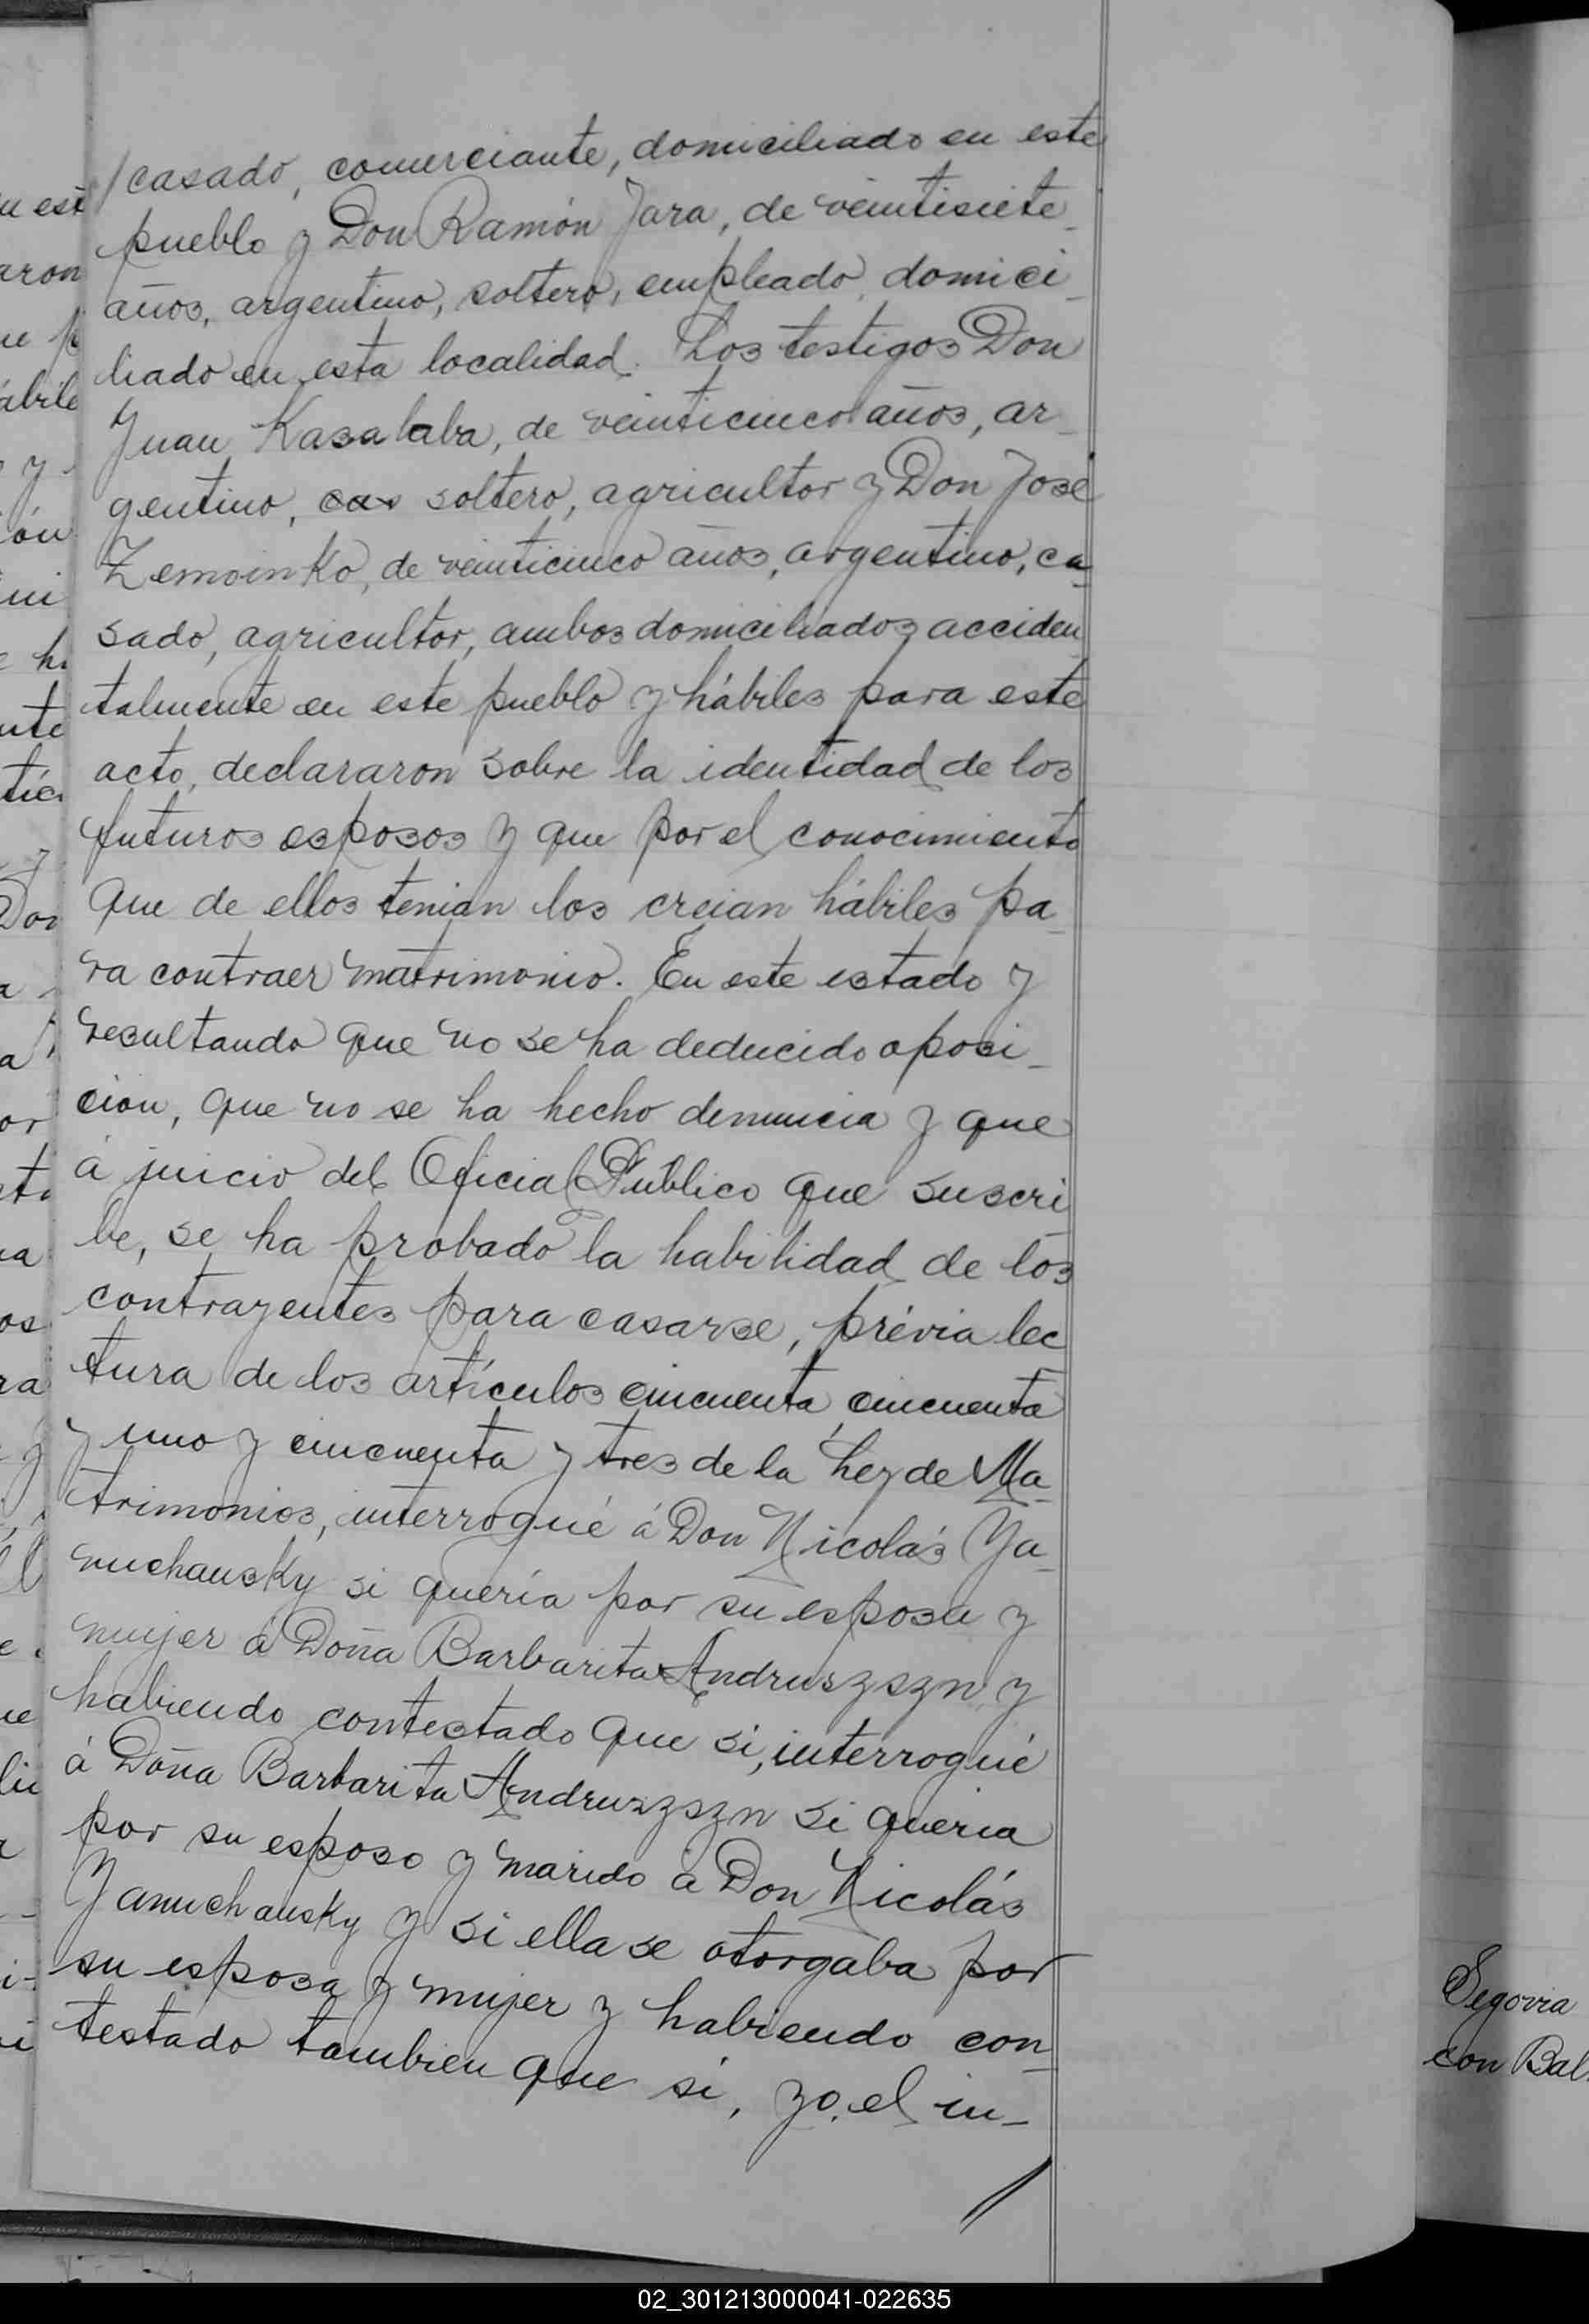 /casado, comerciante, domiciliado en este
pueblo y Don Ramón Jara, de veintisiete
años, argentino, soltero, empleado, domici_
liado en esta localidad. Los testigos Don
Juan Kasalaba, de veinticinco años, ar_
gentino, cas soltero, agricultor y Don José
Zemoinko, de veinticinco años, argentino, ca_
sado, agricultor, ambos domiciliados acciden
talmente en este pueblo y hábiles para este
acto, declararon sobre la identidad de los
futuros esposos y que por el conocimiento
que de ellos tenian los creian hábiles pa_
ra contraer matrimonio. En este estado y
resultando que no se ha deducido oposi_
cion, que no se ha hecho denuncia y que
á juicio del Oficial Público que suscri
be, se ha probado la habilidad de los
contrayentes para casarse, prévia lec
tura de los artículos cincuenta, cincuenta
y uno y cincuenta y tres de la Ley de Ma_
trimonios, interrogué á Don Nicolás Ya_
nuchausky si quería por su esposa y
mujer á Doña Barbarita Andruszszn y
habiendo contestado que si, interrogué
á Doña Barbarita Andruszszn si queria
por su esposo y marido á Don Nicolás
Yanuchausky y si ella se otorgaba por
su esposa y mujer y habiendo con_
testado tambien que si, yo, el in_
Segovia
con Bal
02_301213000041-022635